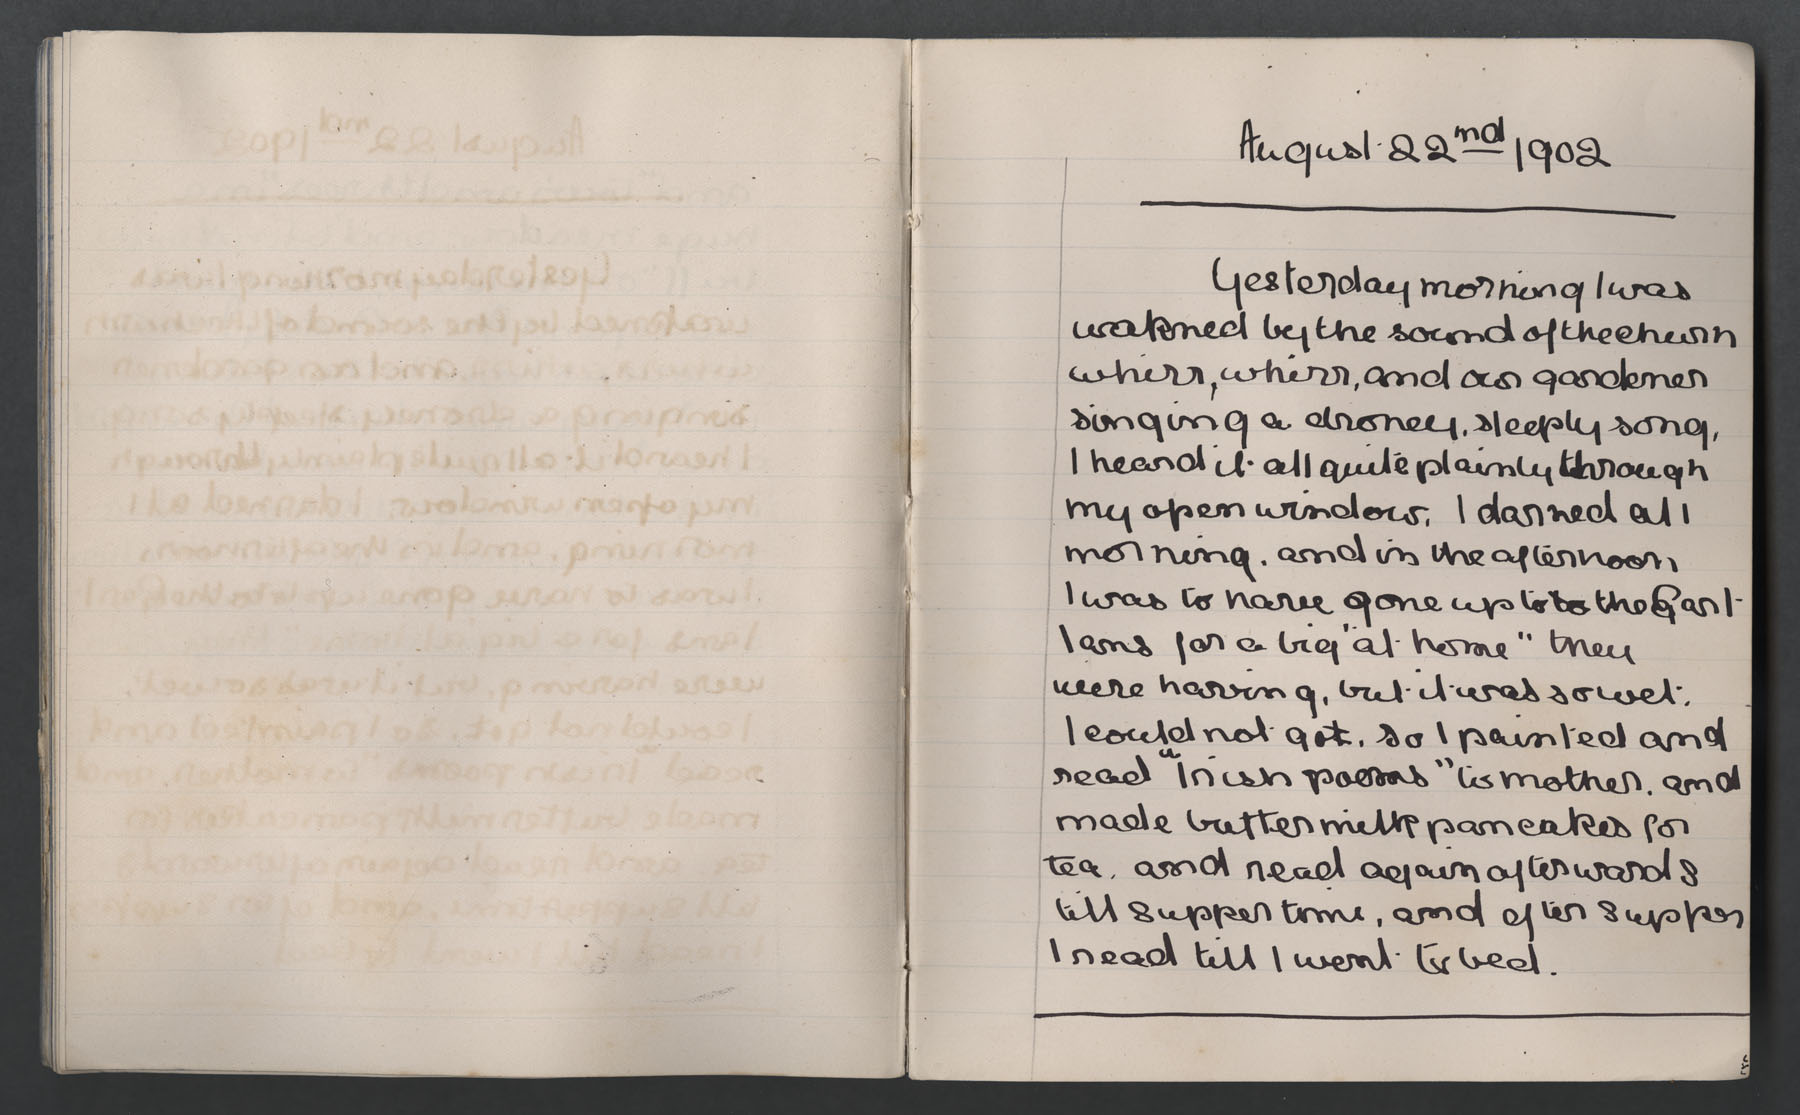 August 22nd 1902
Yesterday morning I was
wakned by the sound of the churn
whirr, whirr, and our gardener
singing a droney, sleeply song,
I heard it all quite plainly through
my open window, I darned all
morning, and in the afternoon
I was to have gone up to to the Gart
lans for a big "at home" they
were having, but it was so wet,
I could not got, so I painted and
read "Irish poems" to mother, and
made buttermilk pancakes for
tea, and read again afterwards
till supper time, and after supper
I read till I went to bed.